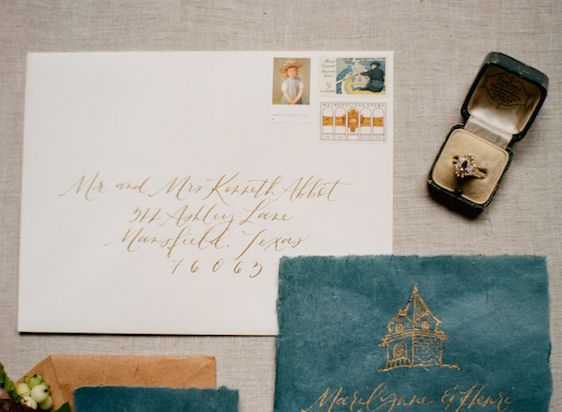 METROPOLITAN OPERA
Mr and Mrs Kenneth Abbot
344 Ashley Lane
Mansfield, Texas
76063
Marilynne & Henri